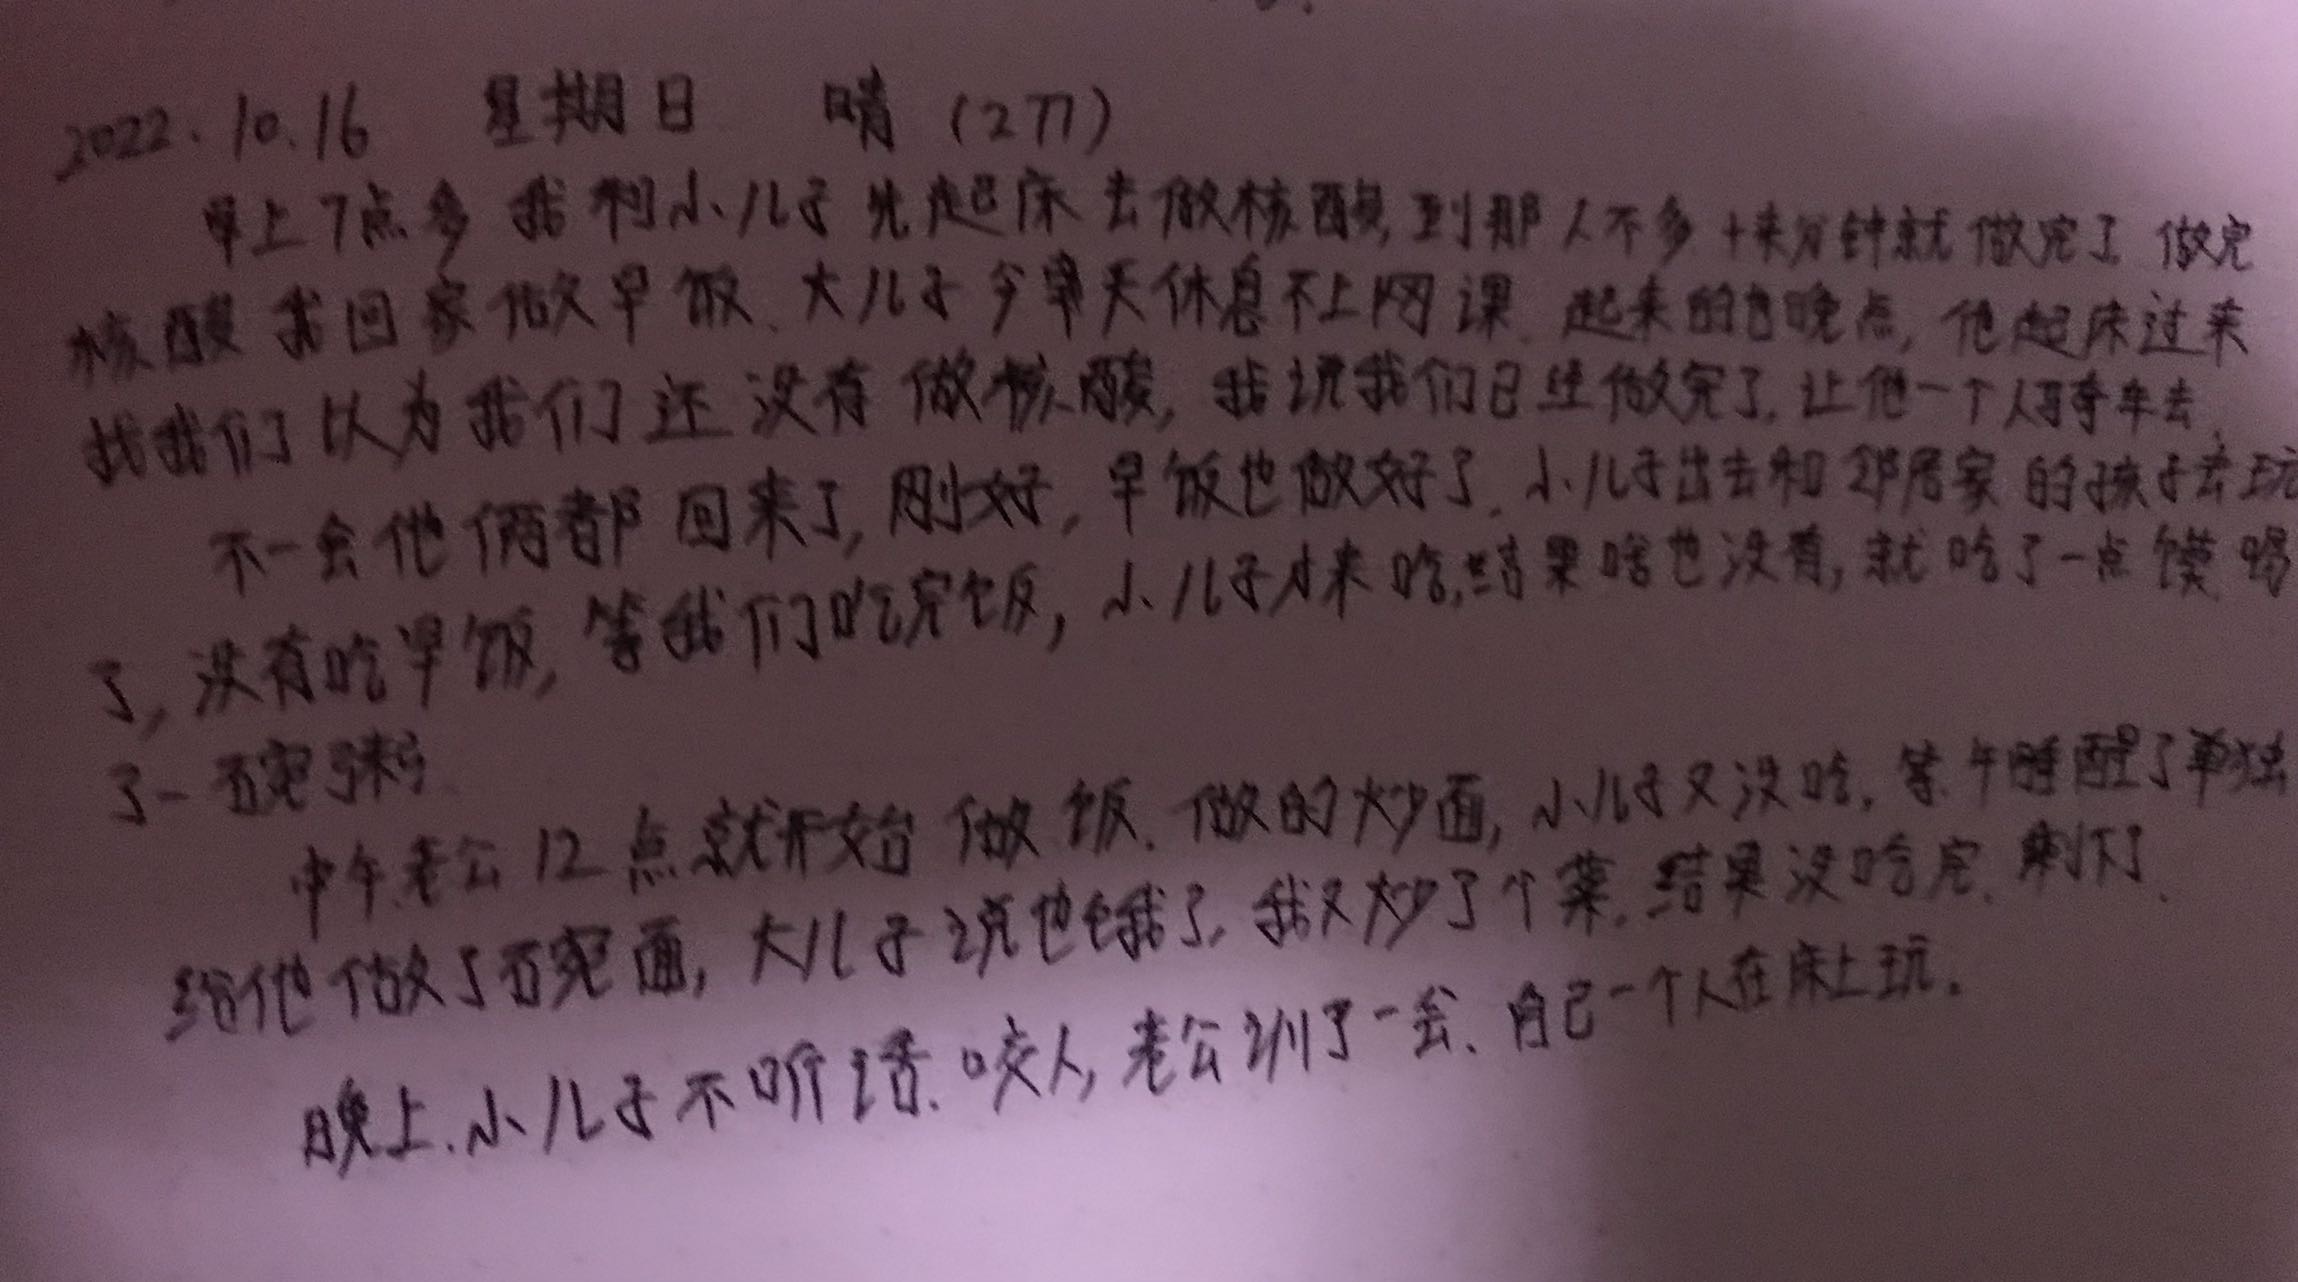 2022.10.16 星期日 晴 (277)
早上7点多我和小儿子先起床去做核酸,到那人不多十来分钟就做完了 做完
核酸我回家做早饭、大儿子今天休息不上网课、起来的也晚点,他起床过来
找我们以为我们还没有做核酸,我说我们已经做完了,让他一个人骑车去、
不一会他俩都回来了,刚好,早饭也做好了、小儿子出去和邻居家的孩子去玩
了,没有吃早饭,等我们吃完饭,小儿子才来吃,结果啥也没有,就吃了一点馍喝
了一碗粥
中午老公12点就开始做饭、做的炒面,小儿子又没吃,等午睡醒了单独
给他做了碗面,大儿子说也饿了,我又炒了个菜,结果没吃完、剩下了、
晚上、小儿子不听话、咬人,老公训了一会、自己一个人在床上玩.